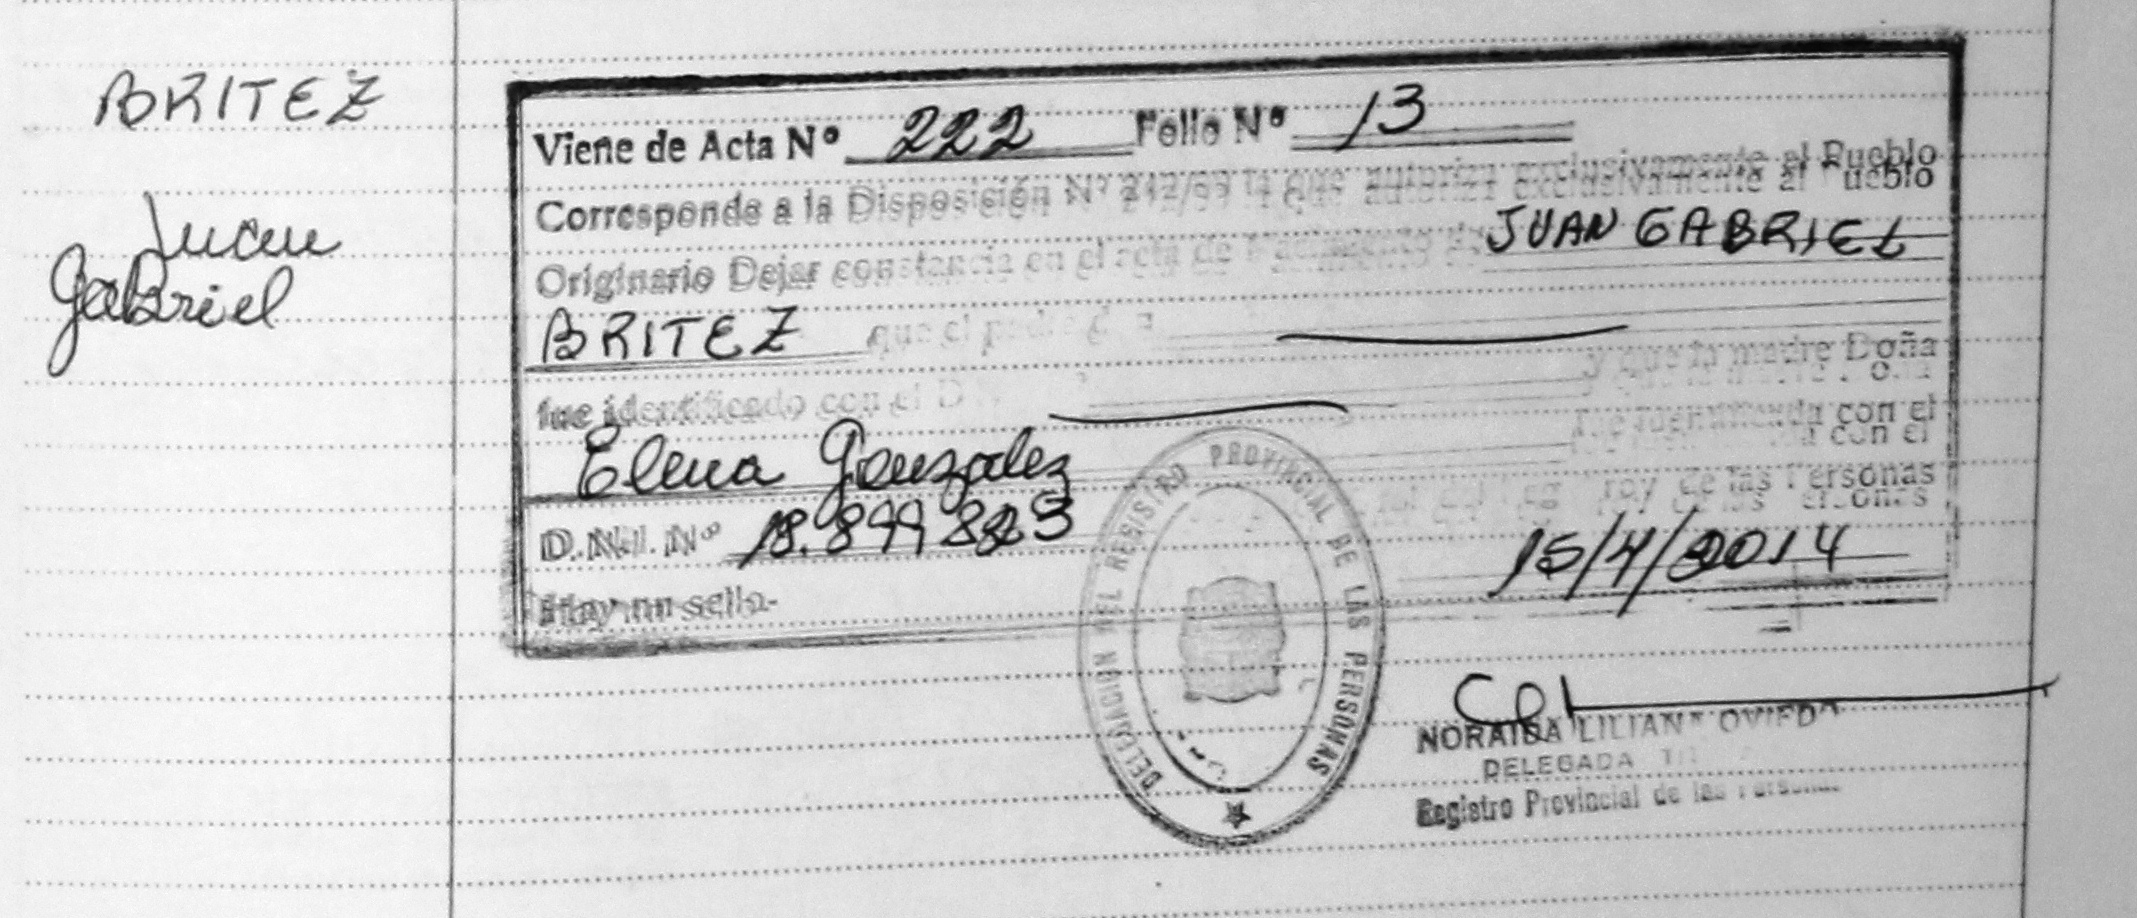 BRITEZ
Juan
Gabriel
Viene de Acta Nº 222 Folio Nº 13
Corresponde a la Disposición Nº 212/99 la que autoriza exclusivamente al Pueblo
Originario Dejar constancia en el acta de Nacimiento de JUAN GABRIEL
BRITEZ que el padre
y que la madre Doña
fue identificado con el D
fue identificada con el
Elena Gonzalez
de las Personas
D.N.I. Nº 18.899
15/4/2014
Hay un sello-
DELEGACION DEL REGISTRO PROVINCIAL DE LAS PERSONAS
NORAIDA LILIANA OVIEDO
DELEGADA
Registro Provincial de las Personas